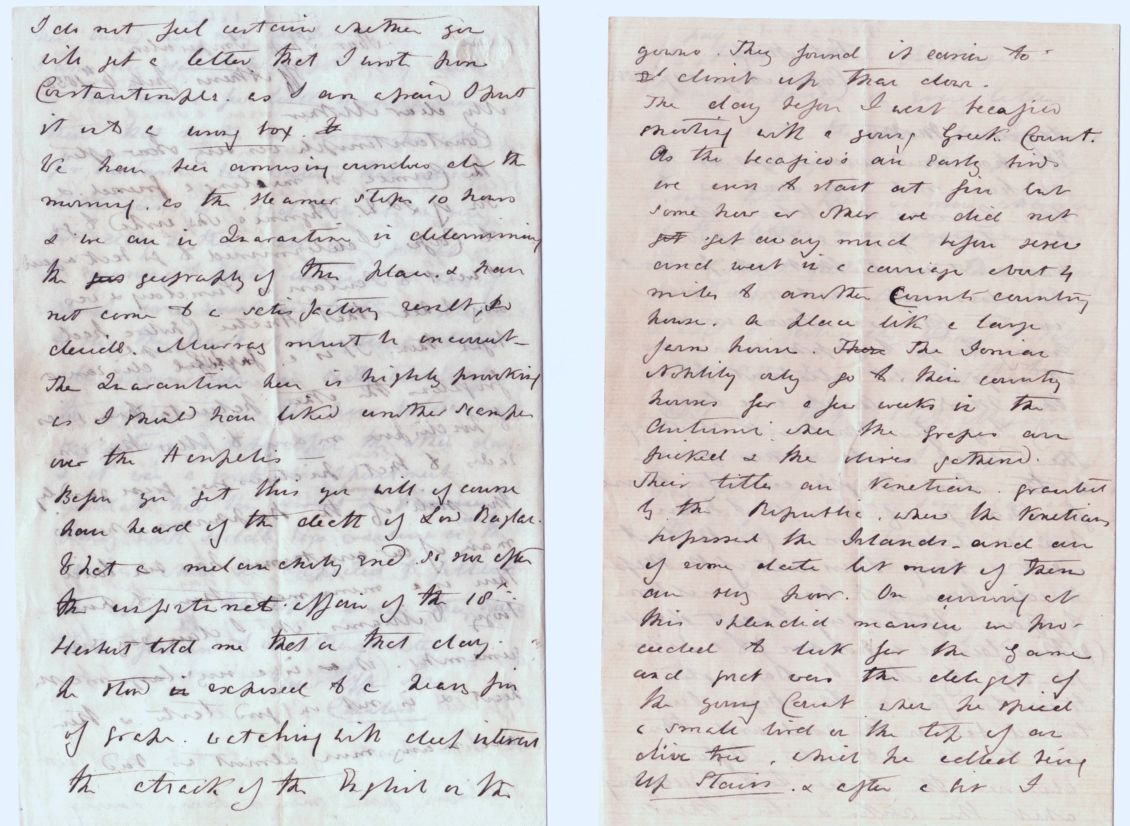 I do not feel certain whether you
will get a letter that I wrote from
Constantinople. as I am afraid I put
it into a wrong box.
We have been amusing ourselves all the
morning. as the steamer stops 10 hours
& we are in Quarantine in determining
the geography of this place. & have
not come to a satisfactory result, to
decide. Murray must be incorrect—
The Quarantine here is highly provoking
as I should have liked another scamper
over the
Before you get this you will of course
have heard of the death of Lord Raglan.
& what a melancholy end. so soon after
the unfortunate affair of the 18th
Herbert told me that on that day.
he stood exposed to a heavy fire
of grape. watching with deep interest
the attack of the English on the
They found it easier to
climb up than down.
The day before I went becafico
shooting with a young Greek Count.
As the becafico's are early birds
we were to start at five but
some how or other we did not
get away much before seven
and went in a carriage about 4
miles to another Counts country
house. a place like a large
farm house. The Ionian
Nobility only go to their country
houses for a few weeks in the
Autumn. when the grapes are
picked & the olives gathered.
Their titles are Venetian. granted
by the Republic. when the Venetians
possessed the Islands - and are
of some date but most of them
are very poor. On arriving at
this splendid mansion we pro-
ceeded to look for the Game
and great was the delight of
the young Count when he spied
a small bird on the top of an
olive tree, which he called being
Up Stairs. & after a bit I